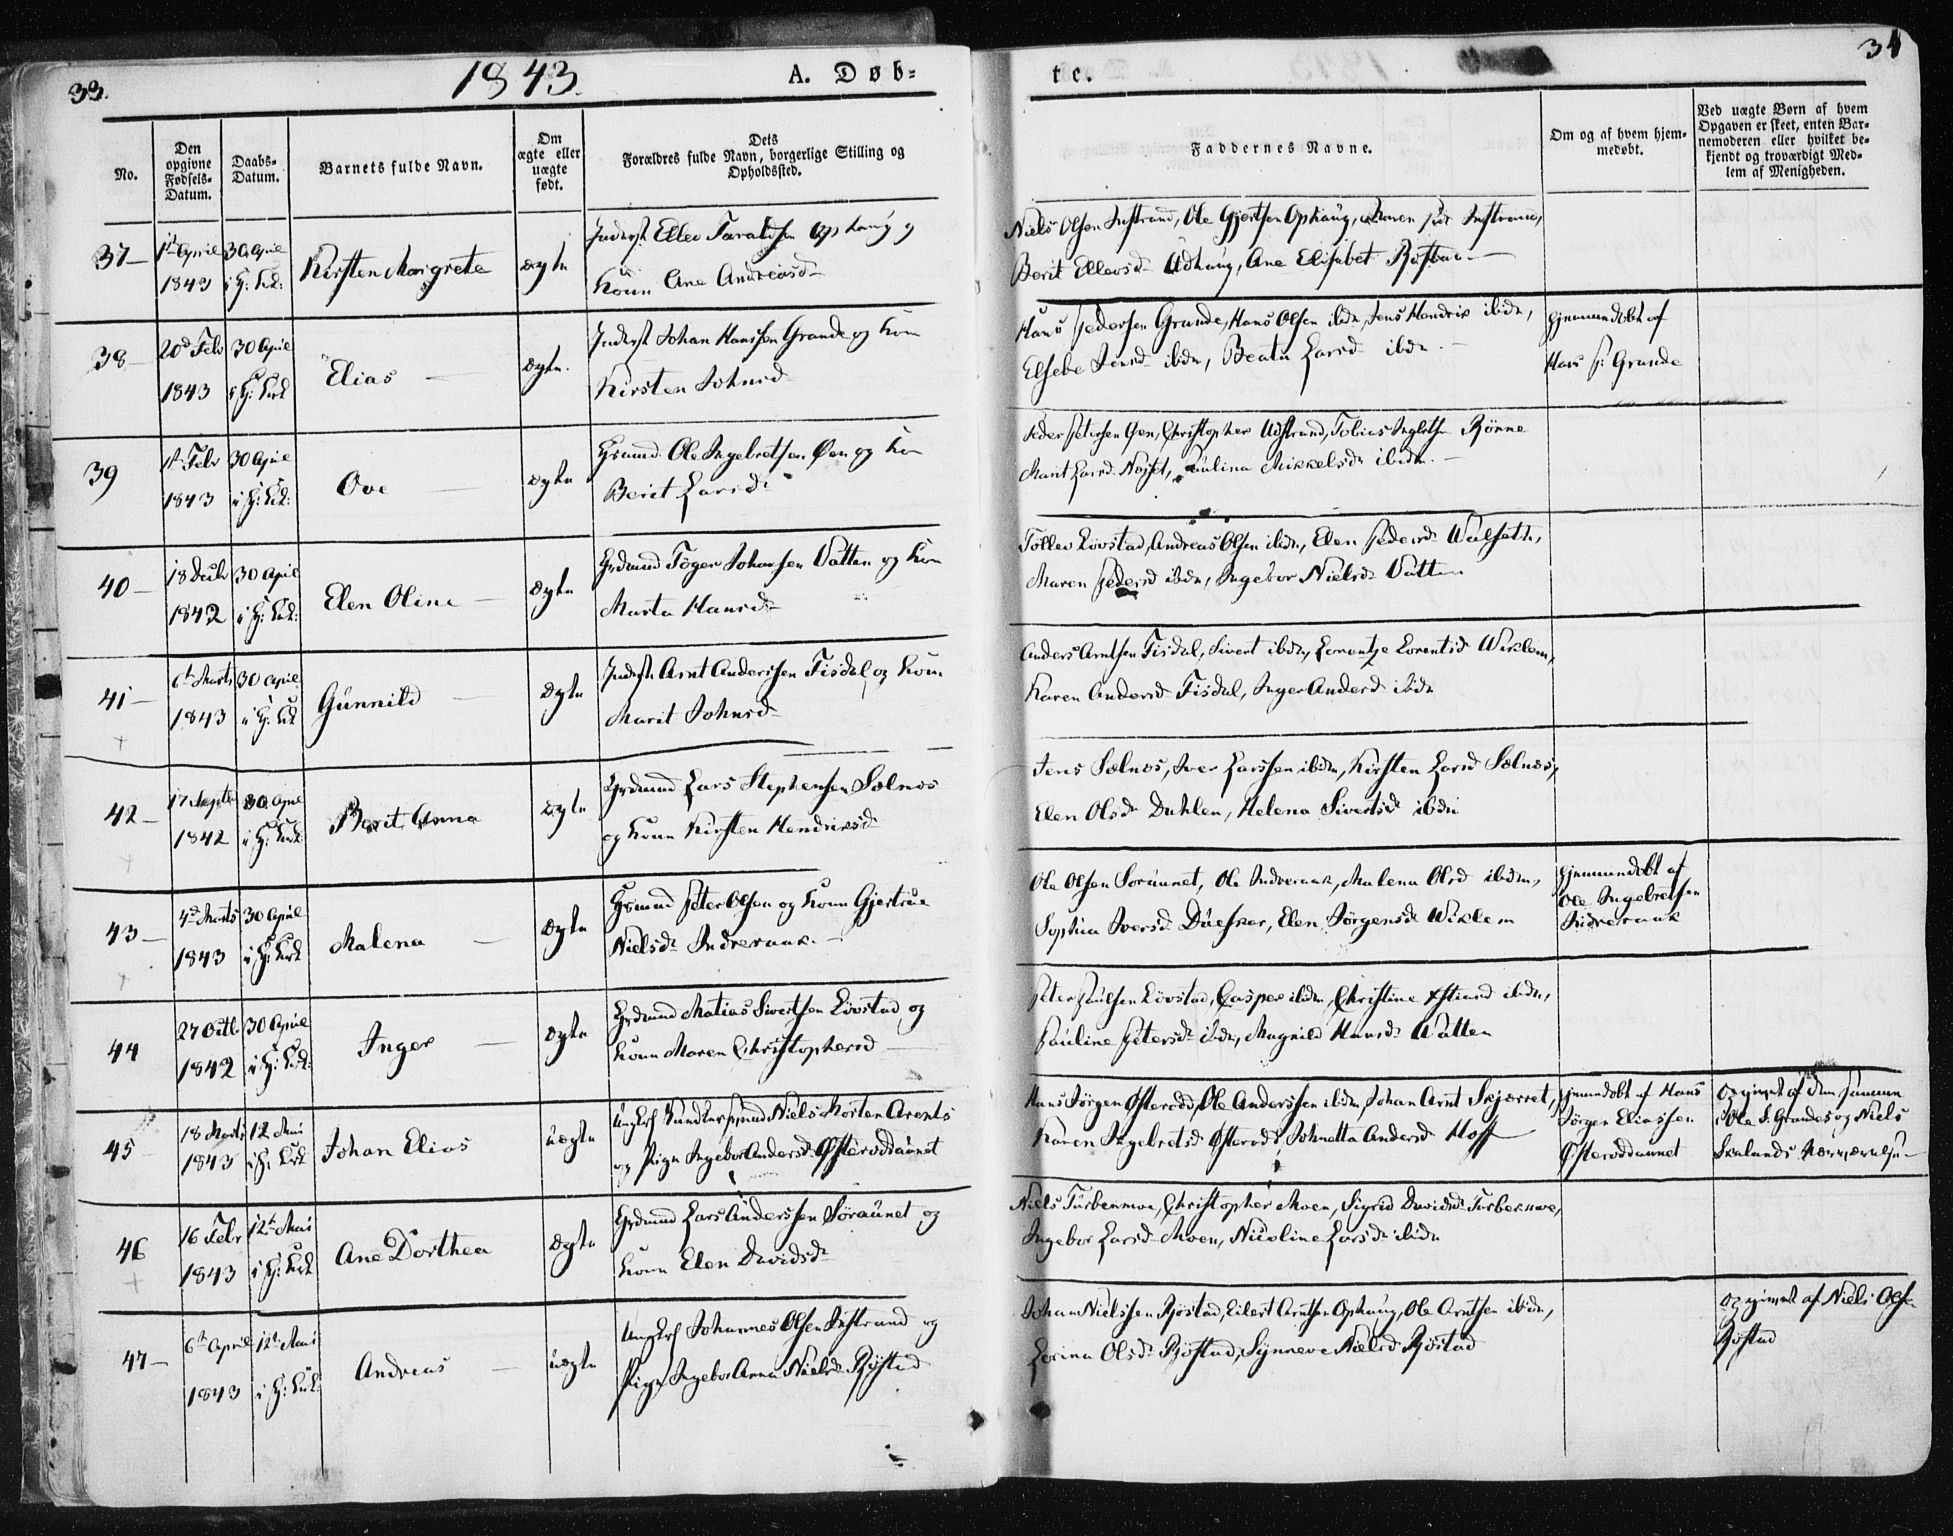 33. 1843. A. Døb=
te. 34
No.
Den
opgivne
Fødsels-
Datum.
Daabs-
Datum.
Barnets fulde Navn.
Om
ægte eller
uægte
født.
Dets
Forældres fulde Navn, borgerlige Stilling og
Opholdssted.
Faddernes Navne.
Om og af hvem hjem-
medøbt.
Ved uægte Børn af hvem
Opgaven er skeet, enten Bar-
nemoderen eller hvilket be-
kjendt og troværdigt Med-
lem af Menigheden.
37 1te April 30 April
1843
Kirsten Margrete
ægte
Inderst Ellev Taraldsen Ophaug og
Kone Ane Andreasd
Niels Olsen Instrand, Ole Gjertsen Ophaug, Maren Instrand,
Berit Ellevsd Udhaug, Ane Elisabet Røstad
38 20de Febr 30 April
1843 i H: Kirk
Elias
ægte.
Inderst Johan Hanssen Grande og Kone
Kirsten Johnsd
Hans Pedersen Grande, Hans Olsen ibdn, Jens Hendrik ibdn,
Elsebe Jensd ibdn, Beata Larsd ibdn
hjemmedøbt af
Hans P: Grande
39 1te Febr 30 April
1843 i H: Kirk:
Ove
ægte
Grdmand Ole Ingebretsen Øen og Kone
Berit Larsd
Peder Petersen Øen, Christopher Udstrand, Tobias Ingebrtsn Rønne
Marit Larsd, Paulina Mikkelsd ibidn.
40 18 Decbr 30 April
1842 i H: Kirk:
Elen Oline
ægte
Grdmand Tøger Johansen Vatten og Kone
Marta Hansd
Tollev Løvstad, Andreas Olsen ibdn, Elen Pedersd Walseth,
Maren Pedersd ibdn, Ingebor Nielsd Vatten
41 6te Marts 30 April
1843 i H: Kirk
Gunnild
ægte
Inderst Arnt Anderssen Tisdal og Kone
Marit Johnsd
Anders Arntsen Tisdal, Sivert ibdn, Lorentze Lorentsd Wiklem,
Karen Andersd Tisdal, Inger Andersd ibdn
42 17 Septbr 30 April
1842 i H: Kirk
Berit Anna
ægte
Grdmand Lars Stephensen Sølnøs
og Kone Kirsten Hendriksd
Jens Sølnes, Iver Larssen ibidn, Kirsten Larsd Sælnes,
Elen Olsd Dahlen, Helena Sivertsd ibdn
43 4de Marts 30 April
1843 i H: Kirk
Malena
ægte
Grdmand Peter Olsen og Kone Gjertrue
Nielsd Indreraak
Ole Olsen Soraunet, Ole Indreraak, Malena Olsd ibidn,
Sophia Iversd, Elen Jørgensd Wiklem
hjemmedøbt af
Ole Ingebretsen
Indreraak
44 27 Octbr 30 April
1842 i H: Kirk:
Inger
ægte
Grdmand Matias Sivertsen Løvstad og
Kone Maren Christophersd
Peter Paulsen Løvstad, Casper ibidn, Christine ibdn,
Pauline Petersd ibdn, Magnild Hansd Vatten
45 18 Marts 12 Mai
1843 i H: Kirk
Johan Elias
uægte
Ungkrl Niels Morten Arents
og Pige Ingebor Andersd Østeroddaunet
Hans Jørgen Østerodd, Ole Anderssen ibdn, Johan Arnt Skjærret,
Karen Ingebretsd Østerodd, Johnetta Andersd Hoff
hjemmedøbt af Hans
Jørgen Eliassen
Østeroddaunet
Opgivet af den samme
i Ole S. Grandes og Niels
46 16 Febr 12te Mai
1843 i H: Kirk
Ane Dorthea
ægte
Grdmand Lars Anderssen Søraunet og
Kone Elen Davidsd
Niels Turbenmoe, Christopher Moen, Sigrid Davidsd Turbekmoe,
Ingebor Larsd Moen, Nicoline Larsd ibidn
47 6te April 12te Mai
1843 i H: Kirk:
Andreas
uægte
Ungkrl Johannes Olsen Instrand og
Pige Ingebor Anna Nielsd Røstad
Johan Nielssen Røstad, Eilert Arntsen Ophaug, Ole Arntsen ibidn,
Lorina Olsd Røstad, Synneve Nielsd Røstad
Opgivet af Niels Olsen
Røstad